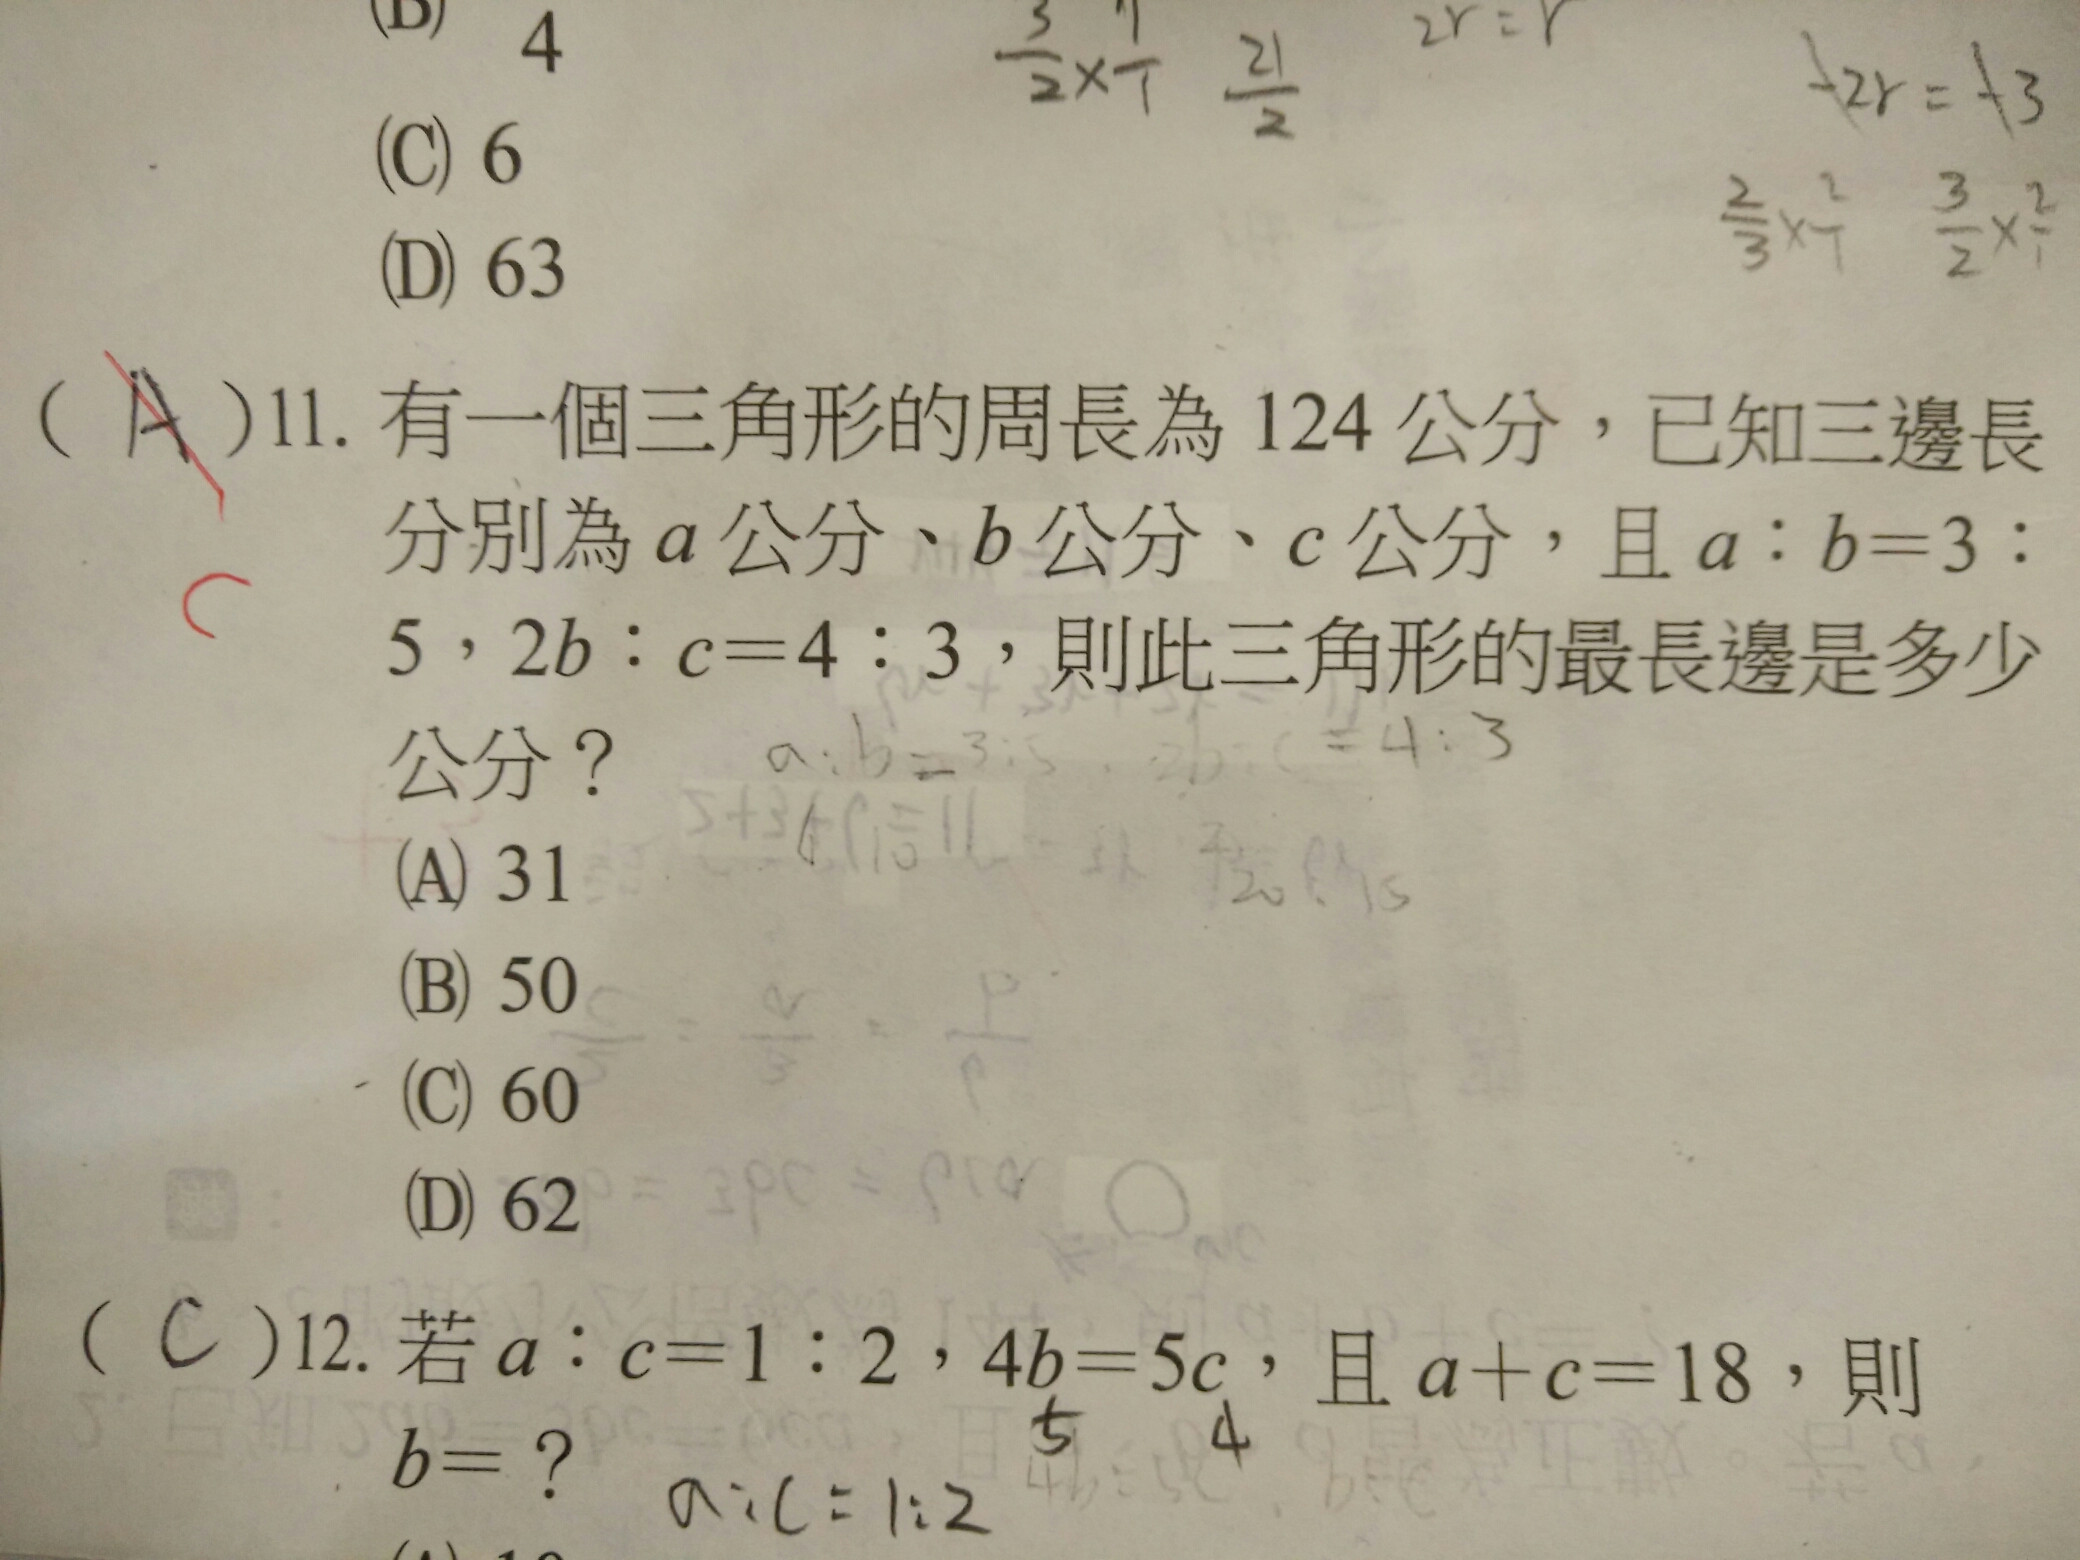 (B)
4
3/2×7/1 21/2
2r=r
-2r=-3
(C) 6
2/3×2/1 3/2×2/1
(D) 63
( A )11. 有一個三角形的周長為 124 公分，已知三邊長
分別為 a 公分、b 公分、c 公分，且 a：b＝3：
C
5，2b：c＝4：3，則此三角形的最長邊是多少
公分？
a:b=3:5 2b:c=4:3
(A) 31
20:15
(B) 50
(C) 60
(D) 62
( C )12. 若 a：c＝1：2，4b＝5c，且 a＋c＝18，則
5 4
b＝？
a:c=1:2